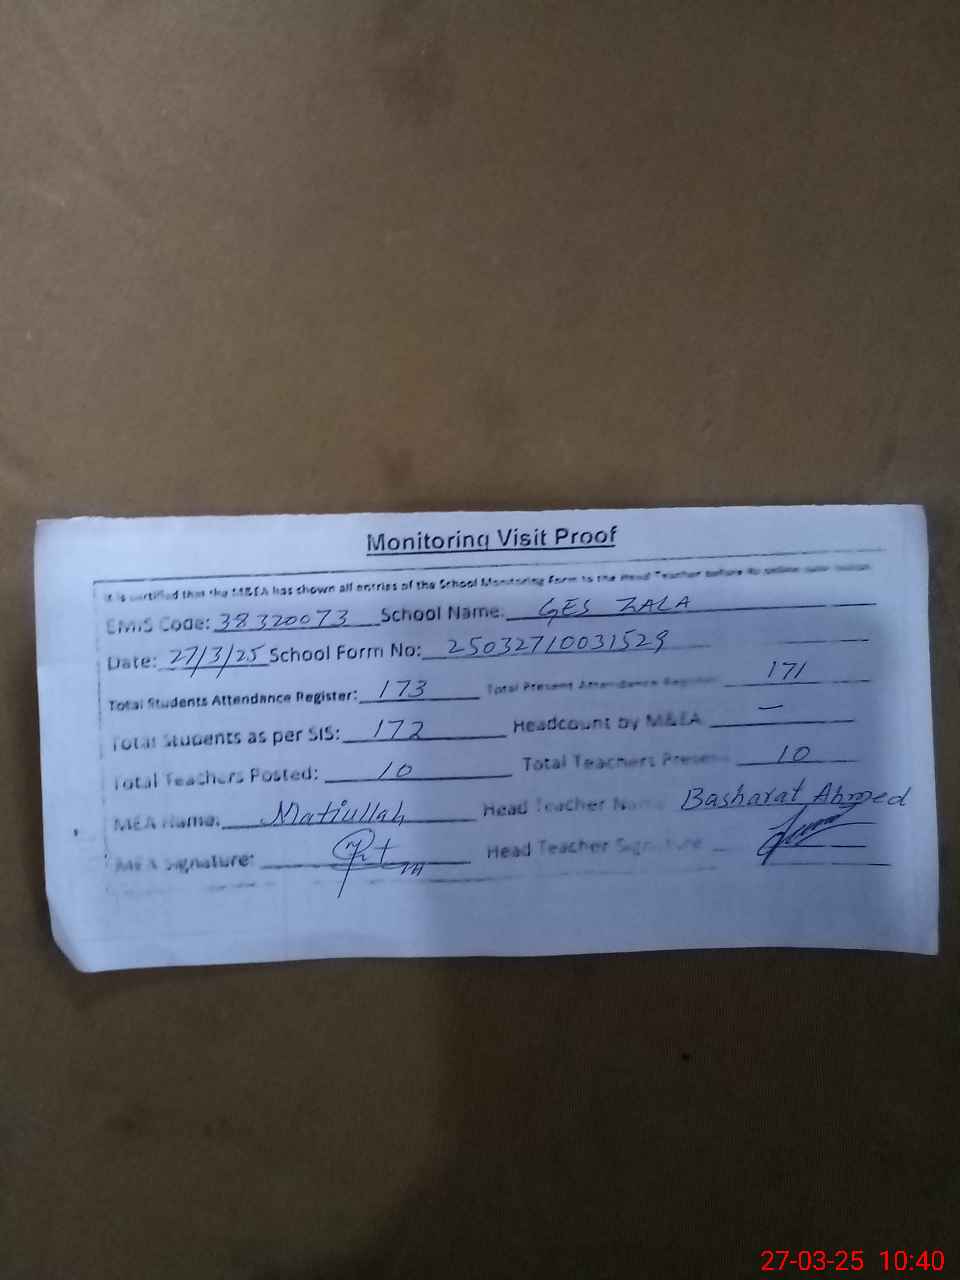 Monitoring Visit Proof
It is certified that the M&EA has shown all entries of the School Monitoring Form to the Head Teacher before its online submission
EMIS Code: 38320073 School Name: GES ZALA
Date: 27/3/25 School Form No: 25032710031529
Total Students Attendance Register: 173 Total Present Attendance Register 171
Total Students as per SIS: 172 Headcount by M&EA —
Total Teachers Posted: 10 Total Teachers Present 10
MEA Name: Matiullah Head Teacher Name Basharat Ahmed
MEA Signature: Head Teacher Signature
27-03-25 10:40